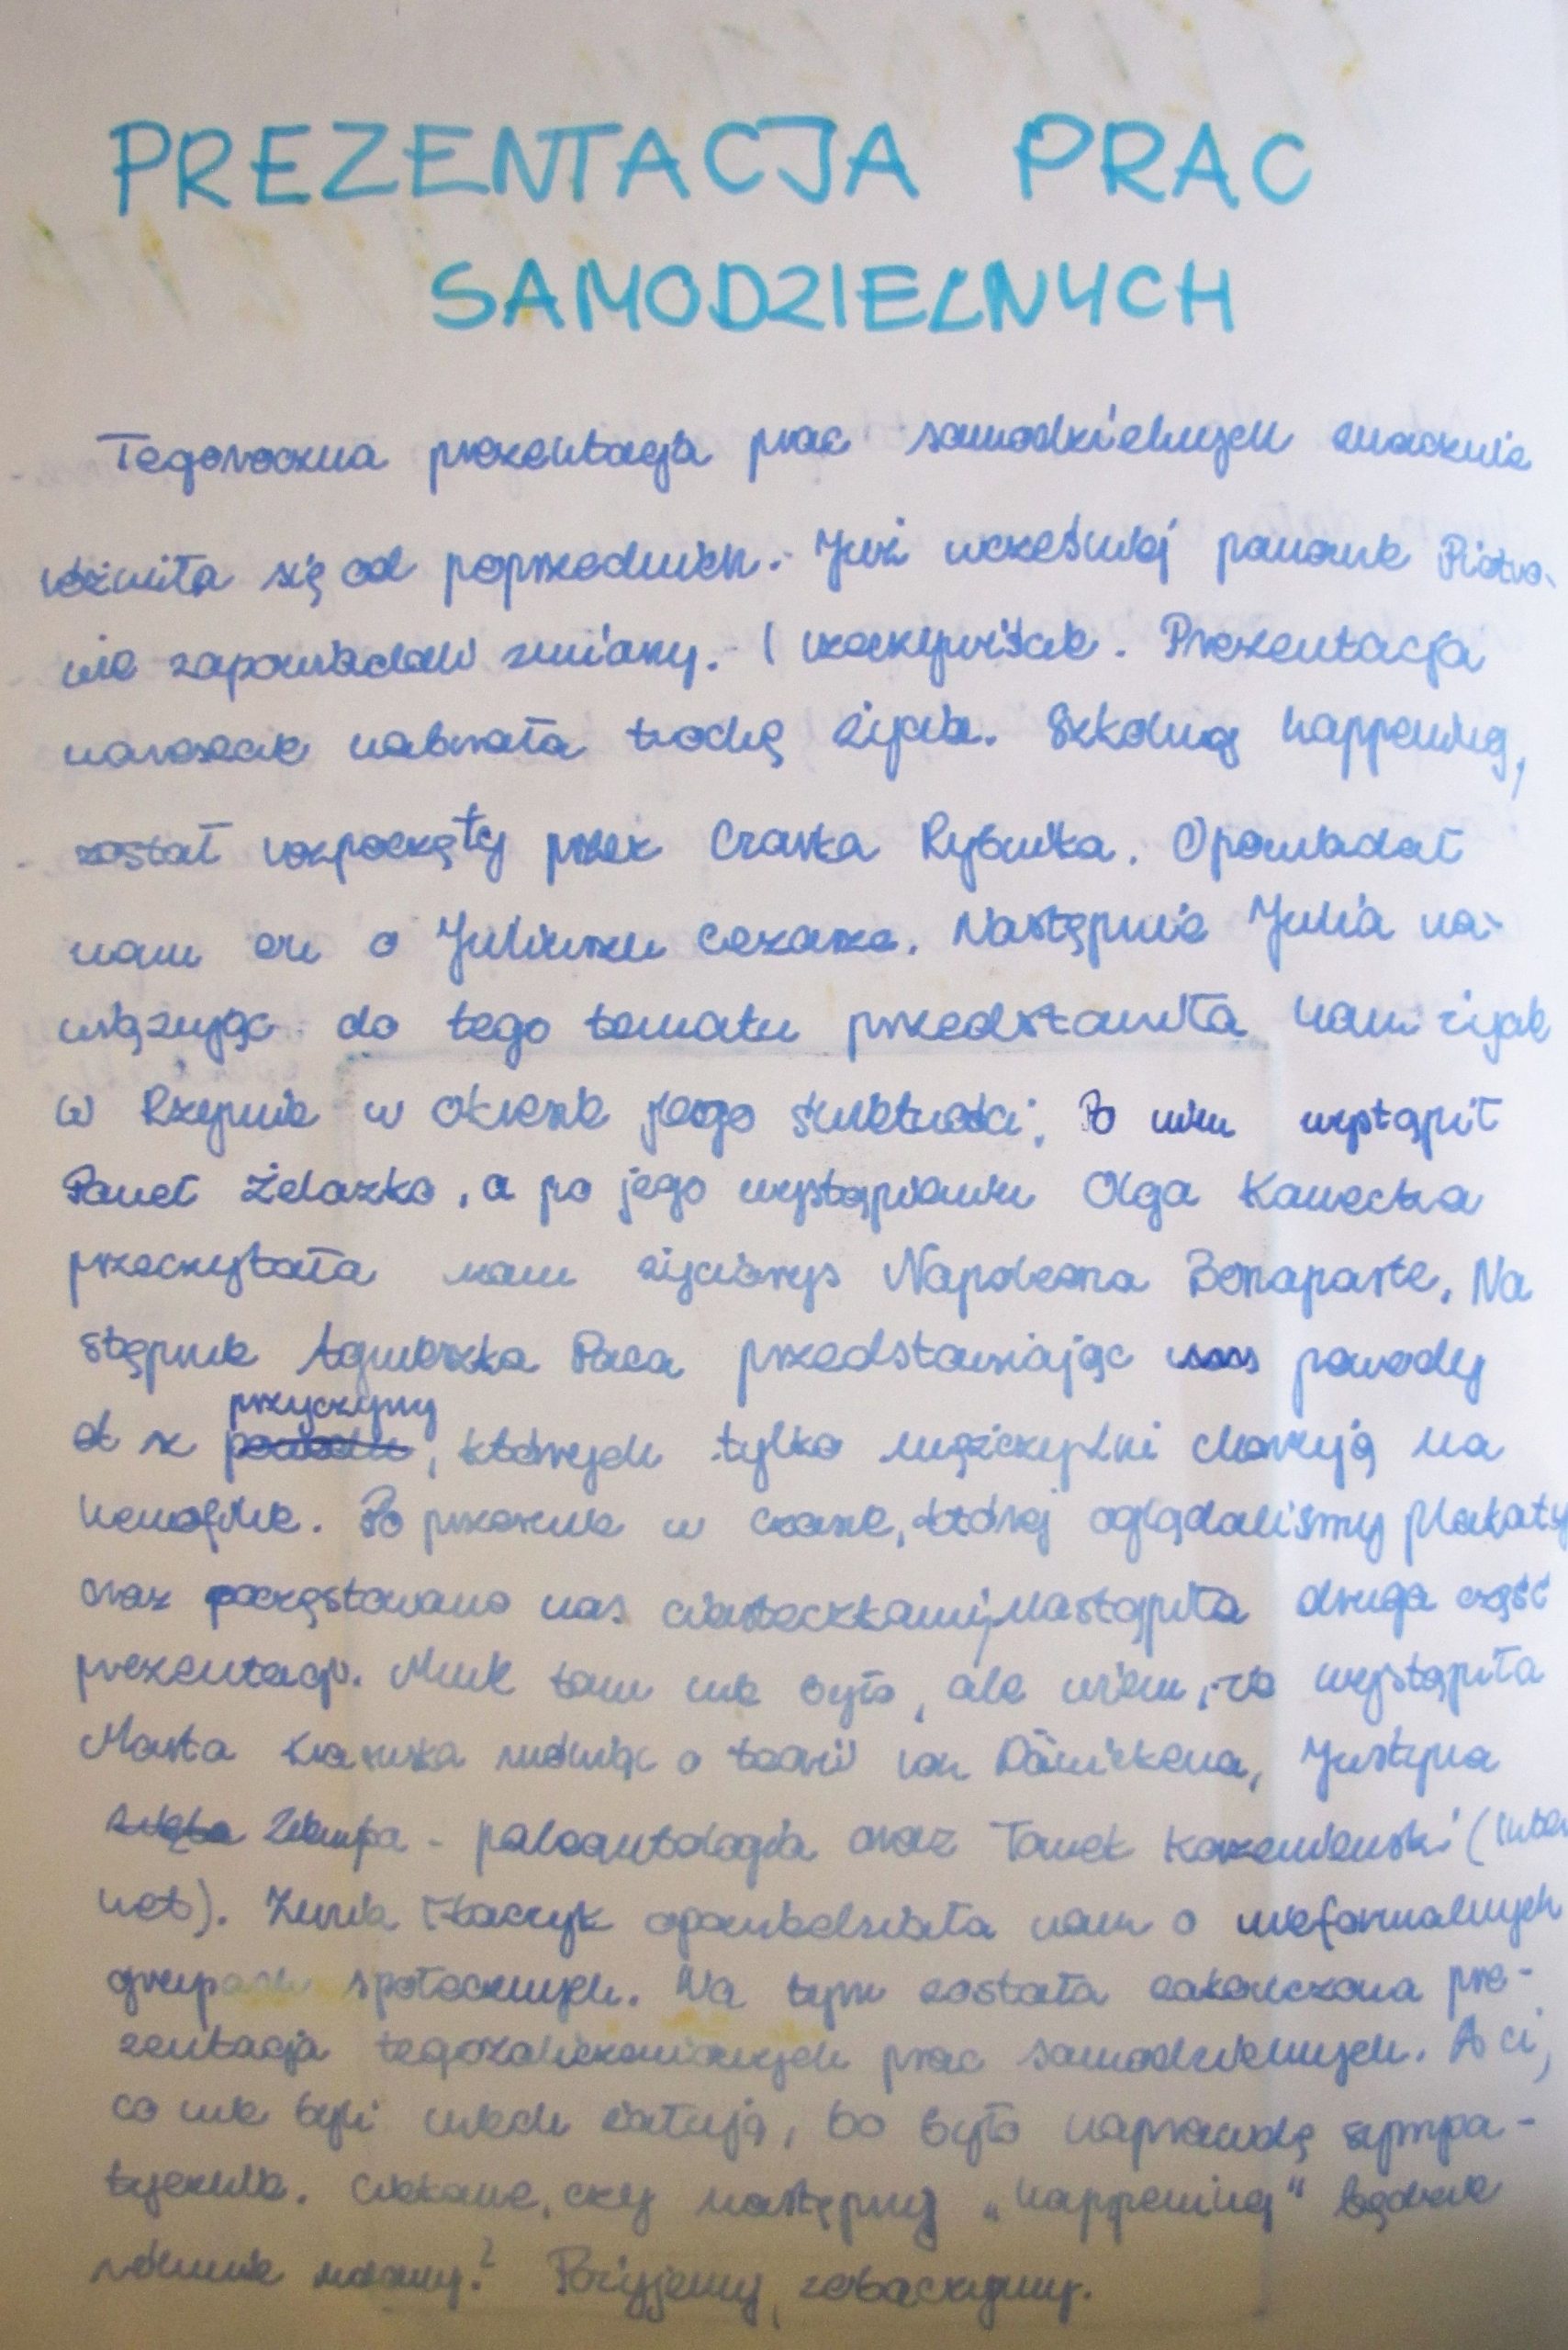 PREZENTACJA PRAC
SAMODZIELNYCH
Tegoroczna prezentacja prac samodzielnych znacznie
różniła się od poprzednich. Już wcześniej panowie Piotro-
wie zapowiadali zmiany. I rzeczywiście. Prezentacja
nareszcie nabrała trochę życia. Szkolny happening,
został rozpoczęty przez Czarka Rybnika. Opowiadał
nam on o Juliuszu Cezarze. Następnie Julia na-
wiązując do tego tematu przedstawiła nam życie
w Rzymie w okresie jego świetności. Po nim wystąpił
Paweł Żelazko, a po jego wystąpieniu Olga Kawecka
przeczytała nam życiorys Napoleona Bonaparte. Na
stępnie Agnieszka Paca przedstawiając powody
przyczyny
z, których tylko mężczyźni chorują na
hemofilie. Po przerwie w czasie, której oglądaliśmy plakaty
oraz poczęstowano nas ciasteczkami, nastąpiła druga część
prezentacji. Mnie tam nie było, ale wiem, że wystąpiła
Marta mówiąc o teorii von Dänikena, Justyna
- paleontologia oraz Tomek Korzeniewski (inter
net). Zuzia Tkaczyk opowiedziała nam o nieformalnych
grupach społecznych. Na tym została zakończona pre-
zentacja prac samodzielnych. A ci,
co nie byli niech żałują, bo było naprawdę sympa-
tycznie. Ciekawe, czy następny „happening" będzie
równie udany? Pożyjemy, zobaczymy.